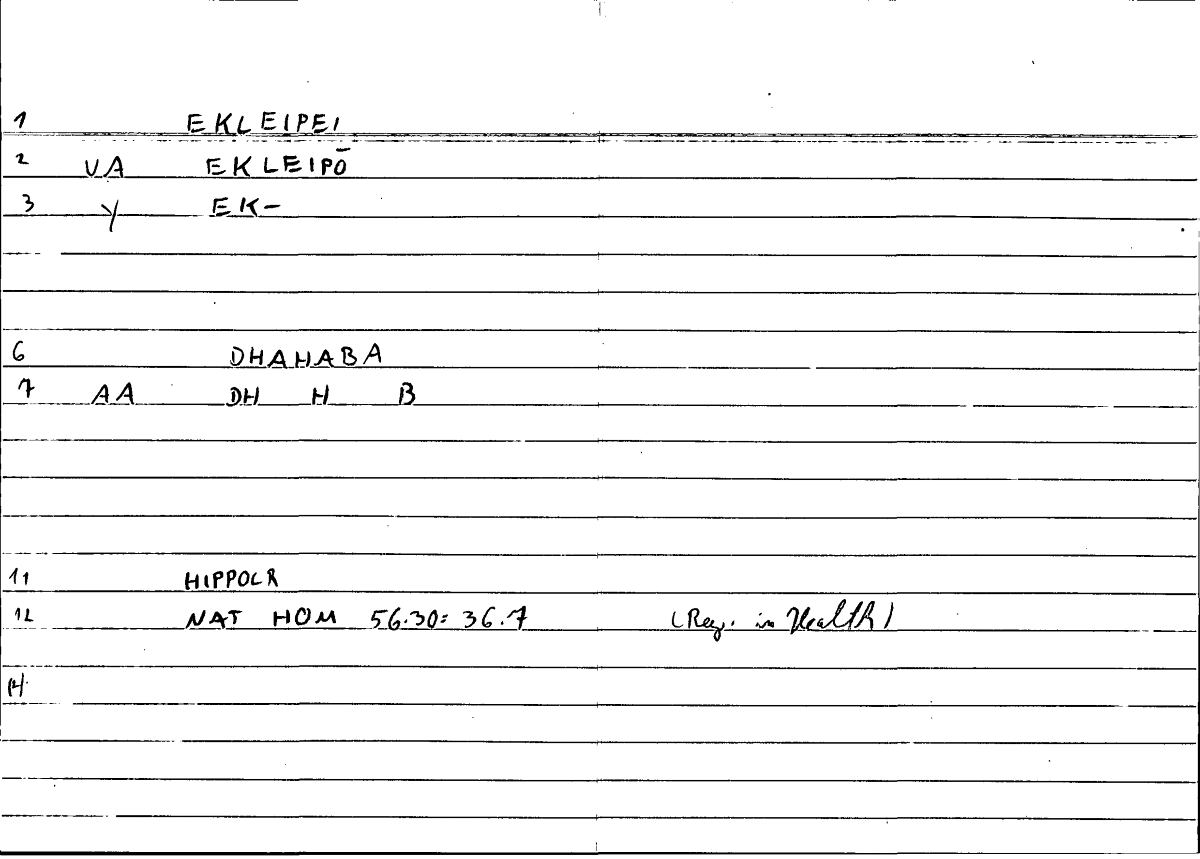 1 EKLEIPEI
2 VA EKLEIPŌ
3 Y EK-
6 DHAHABA
7 AA DH H B
11 HIPPOCR
12 NAT HOM 56.30= 36.7 (Reg. in Health)
14